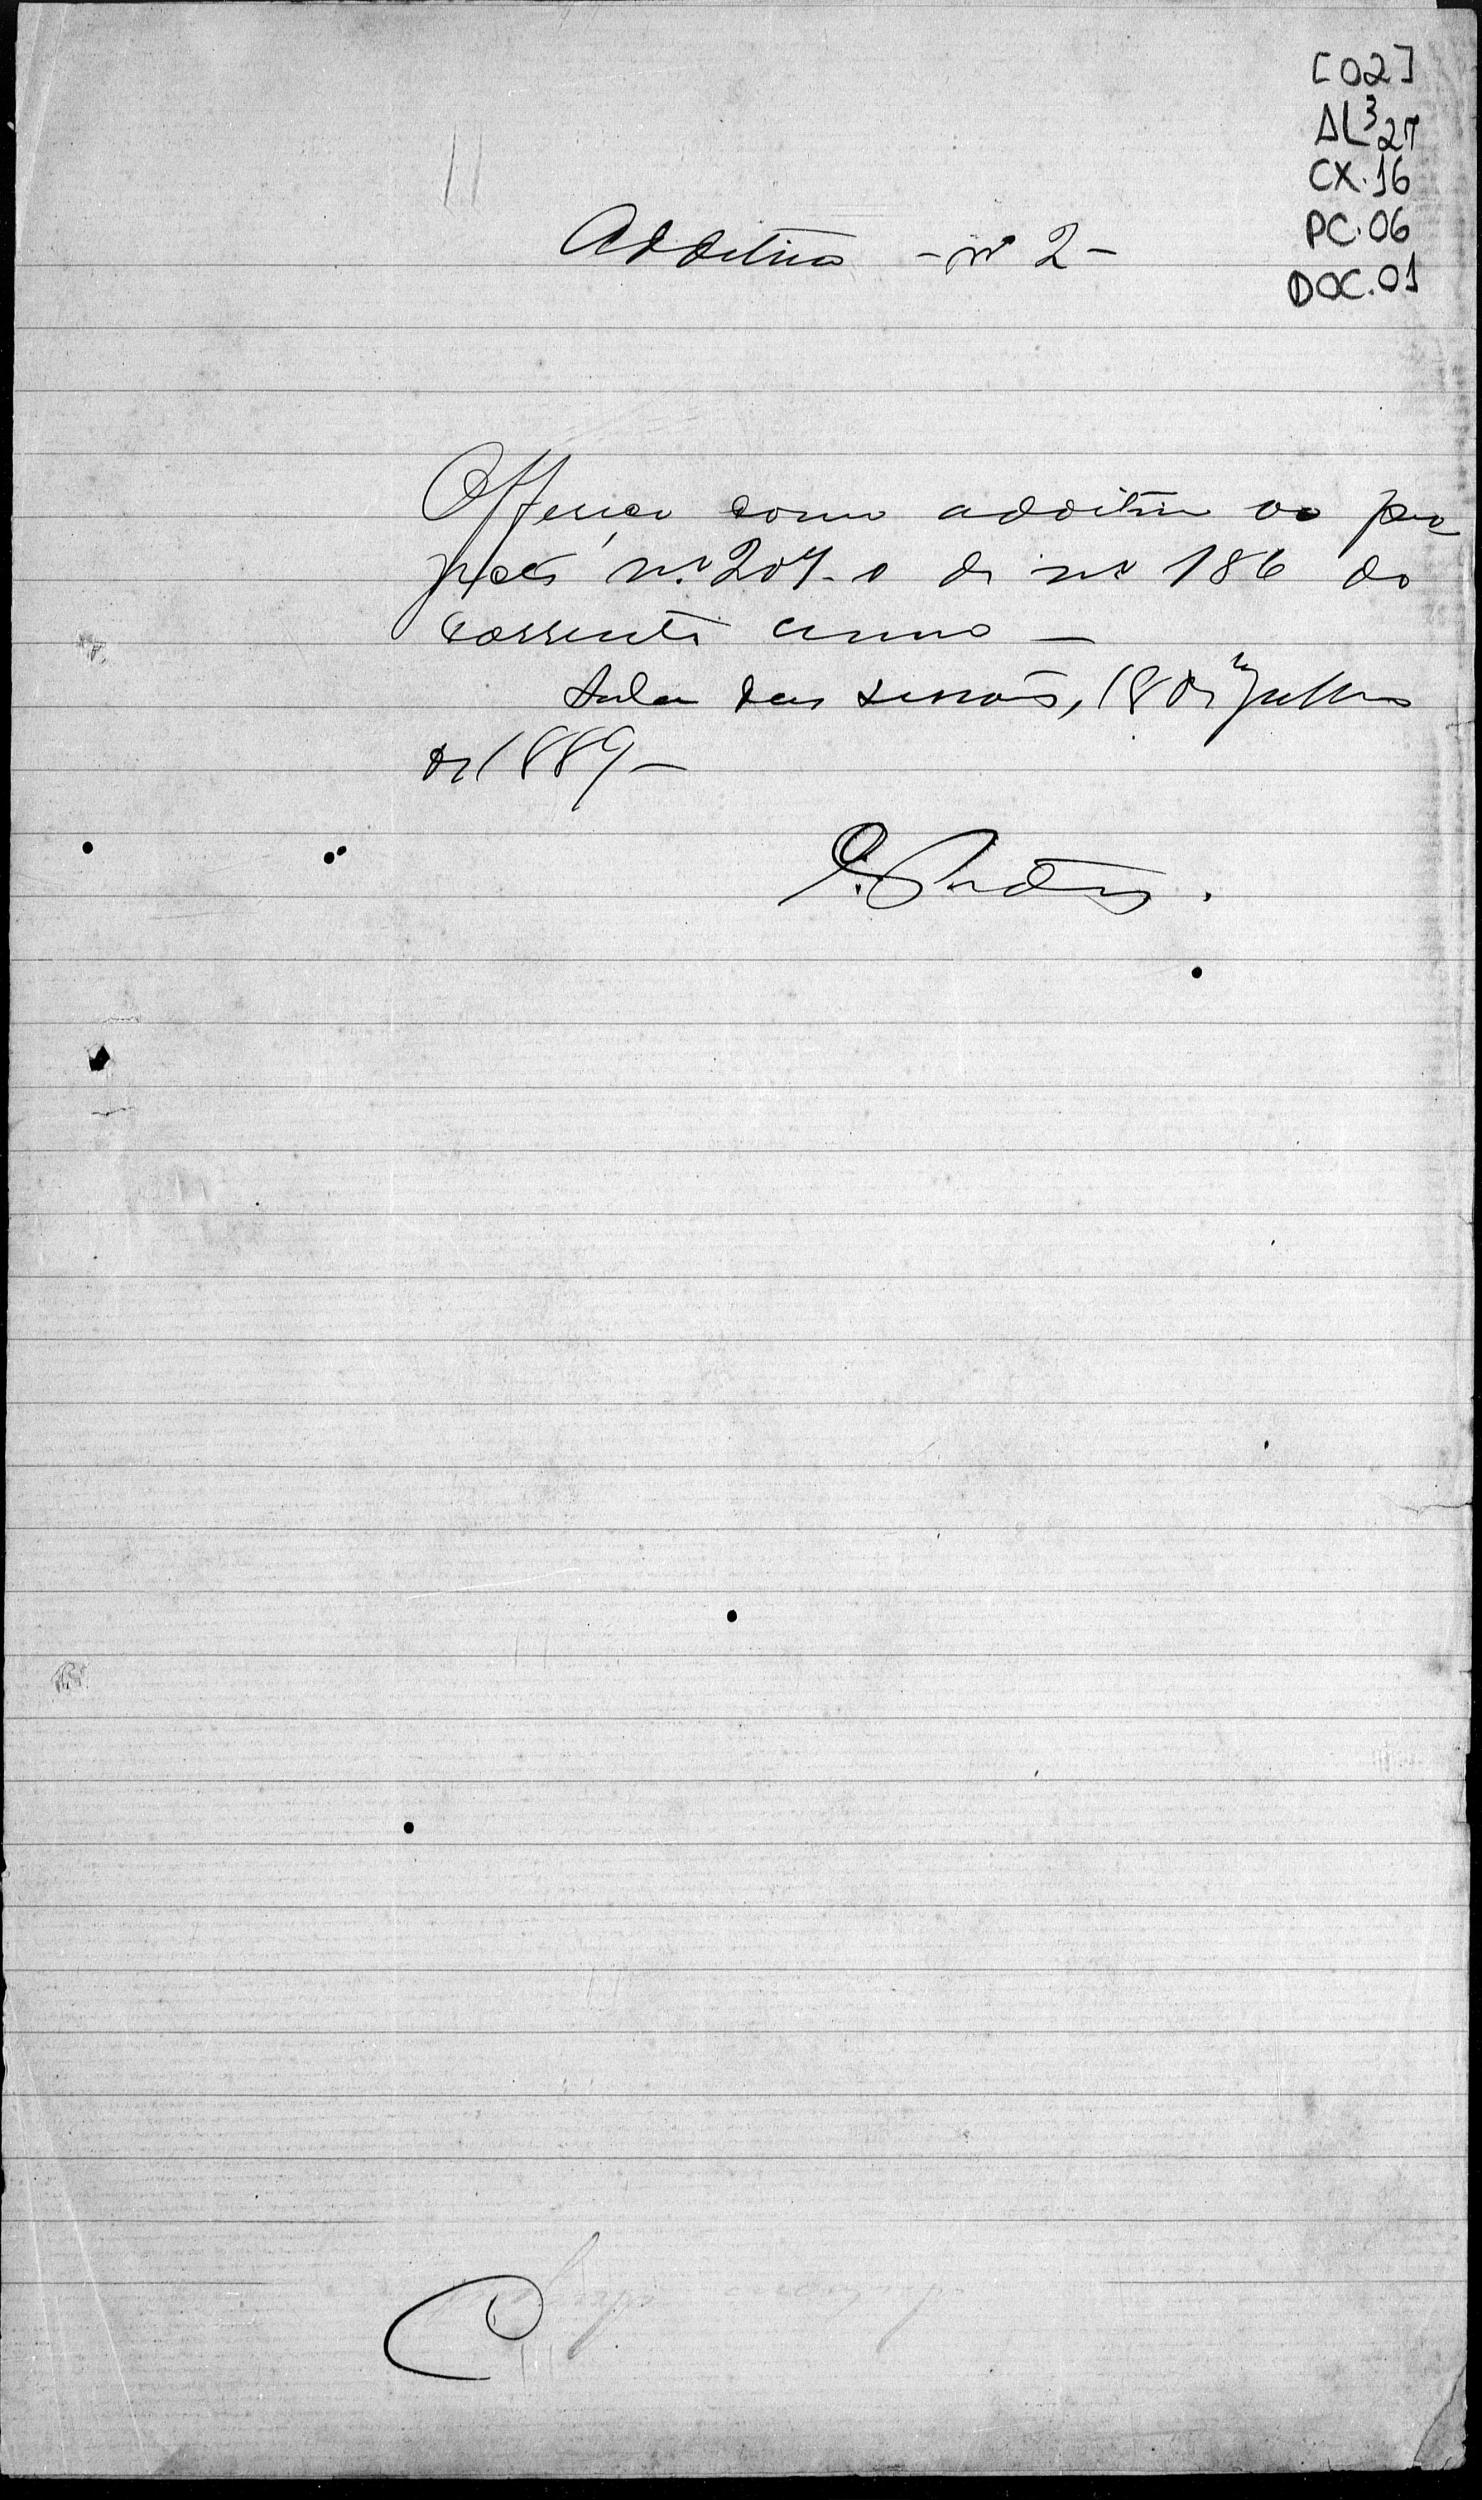 [02]
AL³27
CX.16
PC.06
DOC.01
Additivo - nº 2 -
Offereço como additivo ao pro-
jecto nº 207 - o de nº 186 do
corrente anno -
Sala das sessões, 18 de Julho
de 1889 -